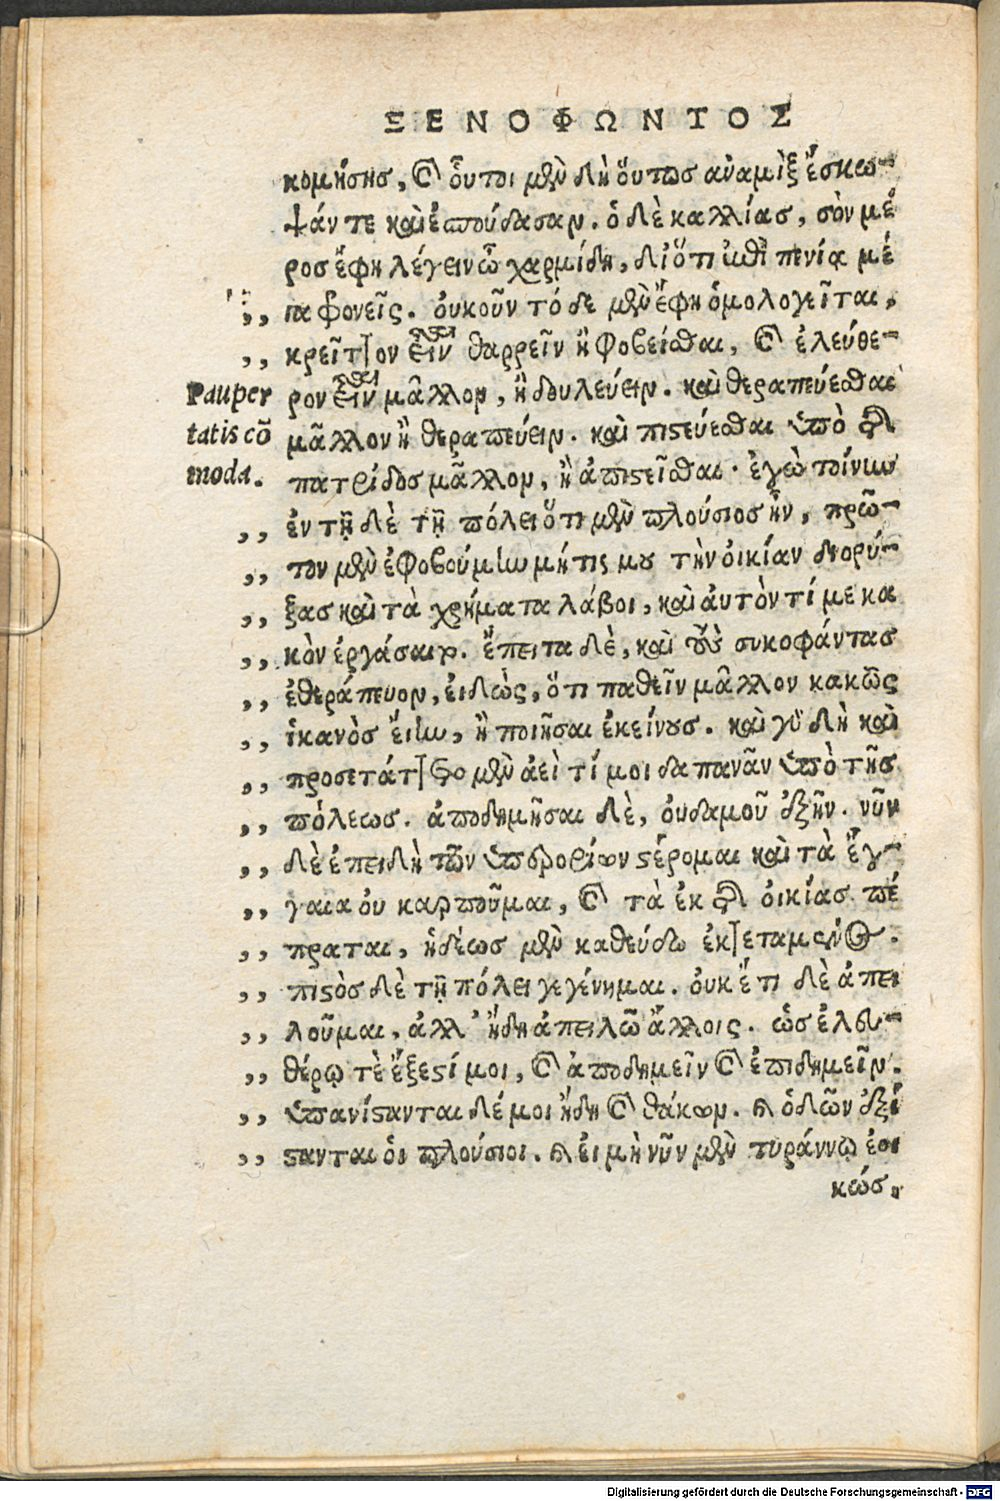 ΞΕΝΟΦΩΝΤΟΣ
κομήσης, καὶ οὗτοι μὲν δὴ οὕτως ἀναμὶξ ἔσκω-
ψάν τε καὶ ἐσπούδασαν. ὁ δὲ καλλίας, σὸν μέ
ρος ἔφη λέγειν ὦ χαρμίδη, διότι ἐπὶ πενίᾳ μέ
,, γα φρονεῖς. οὐκοῦν τόδε μὲν ἔφη ὁμολογεῖται,
,, κρεῖττον εἶναι θαρρεῖν ἢ φοβεῖσθαι, καὶ ἐλεύθε-
Pauper ρον εἶναι μᾶλλον, ἢ δουλεύειν. καὶ θεραπεύεσθαι
tatis cō μᾶλλον ἢ θεραπεύειν. καὶ πιστεύεσθαι ὑπὸ τῆς
moda. πατρίδος μᾶλλον, ἢ ἀπιστεῖσθαι. ἐγὼ τοίνυν
,, ἐν τῇ δὲ τῇ πόλει ὅτι μὲν πλούσιος ἦν, πρῶ-
,, τον μὲν ἐφοβούμην μήτις μου τὴν οἰκίαν διορύ-
,, ξας καὶ τὰ χρήματα λάβοι, καὶ αὐτὸν τί με κα
,, κὸν ἐργάσαιτο. ἔπειτα δὲ, καὶ τοὺς συκοφάντας
,, ἐθεράπευον, εἰδὼς, ὅτι παθεῖν μᾶλλον κακῶς
,, ἱκανὸς εἴην, ἢ ποιῆσαι ἐκείνους. καὶ γὰρ δὴ καὶ
,, προσετάττετο μὲν ἀεὶ τί μοι δαπανᾶν ὑπὸ τῆς
,, πόλεως. ἀποδημῆσαι δὲ, οὐδαμοῦ ἐξῆν. νῦν
,, δὲ ἐπειδὴ τῶν ὑπερορίων στέρομαι καὶ τὰ ἔγ-
,, γαια οὐ καρποῦμαι, καὶ τὰ ἐκ τῆς οἰκίας πέ
,, πραται, ἡδέως μὲν καθεύδω ἐκτεταμένος.
,, πιστὸς δὲ τῇ πόλει γεγένημαι. οὐκ ἔτι δὲ ἀπει
,, λοῦμαι, ἀλλ' ἤδη ἀπειλῶ ἄλλοις. ὡς ἐλευ-
,, θέρῳ τὲ ἔξεστί μοι, καὶ ἀποδημεῖν καὶ ἐπιδημεῖν.
,, ὑπανίστανται δέ μοι ἤδη καὶ θάκων. καὶ ὁδῶν ἐξί
,, στανται οἱ πλούσιοι. καὶ εἰμὴ νῦν μὲν τυράννῳ ἐοι
κώς.
Digitalisierung gefördert durch die Deutsche Forschungsgemeinschaft - DFG